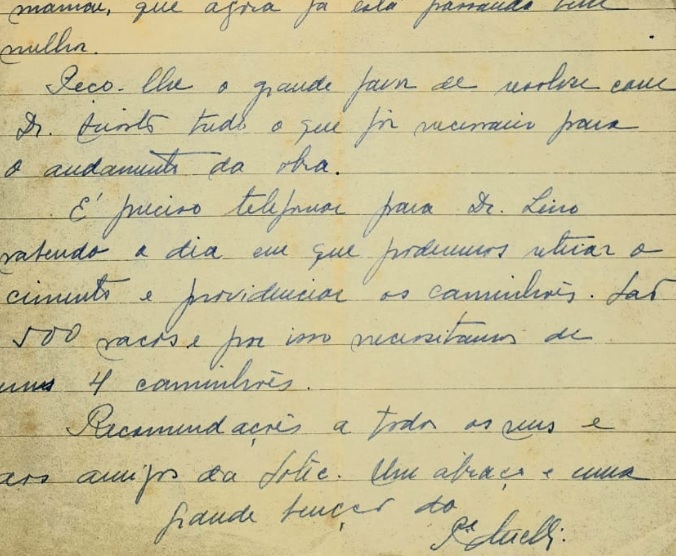 mamãe, que agora já está passando bem
melhor.
Peço-lhe o grande favor de resolver com
Dr. tudo o que for necessario para
o andamento da obra.
É preciso telefonar para Dr. Lino
sabendo o dia em que poderemos retirar o
cimento e providenciar os caminhões. São
500 sacos e por isso necessitamos de
uns 4 caminhões.
Recomendações a todos os seus e
aos amigos da Um abraço e uma
grande benção do
Pe.